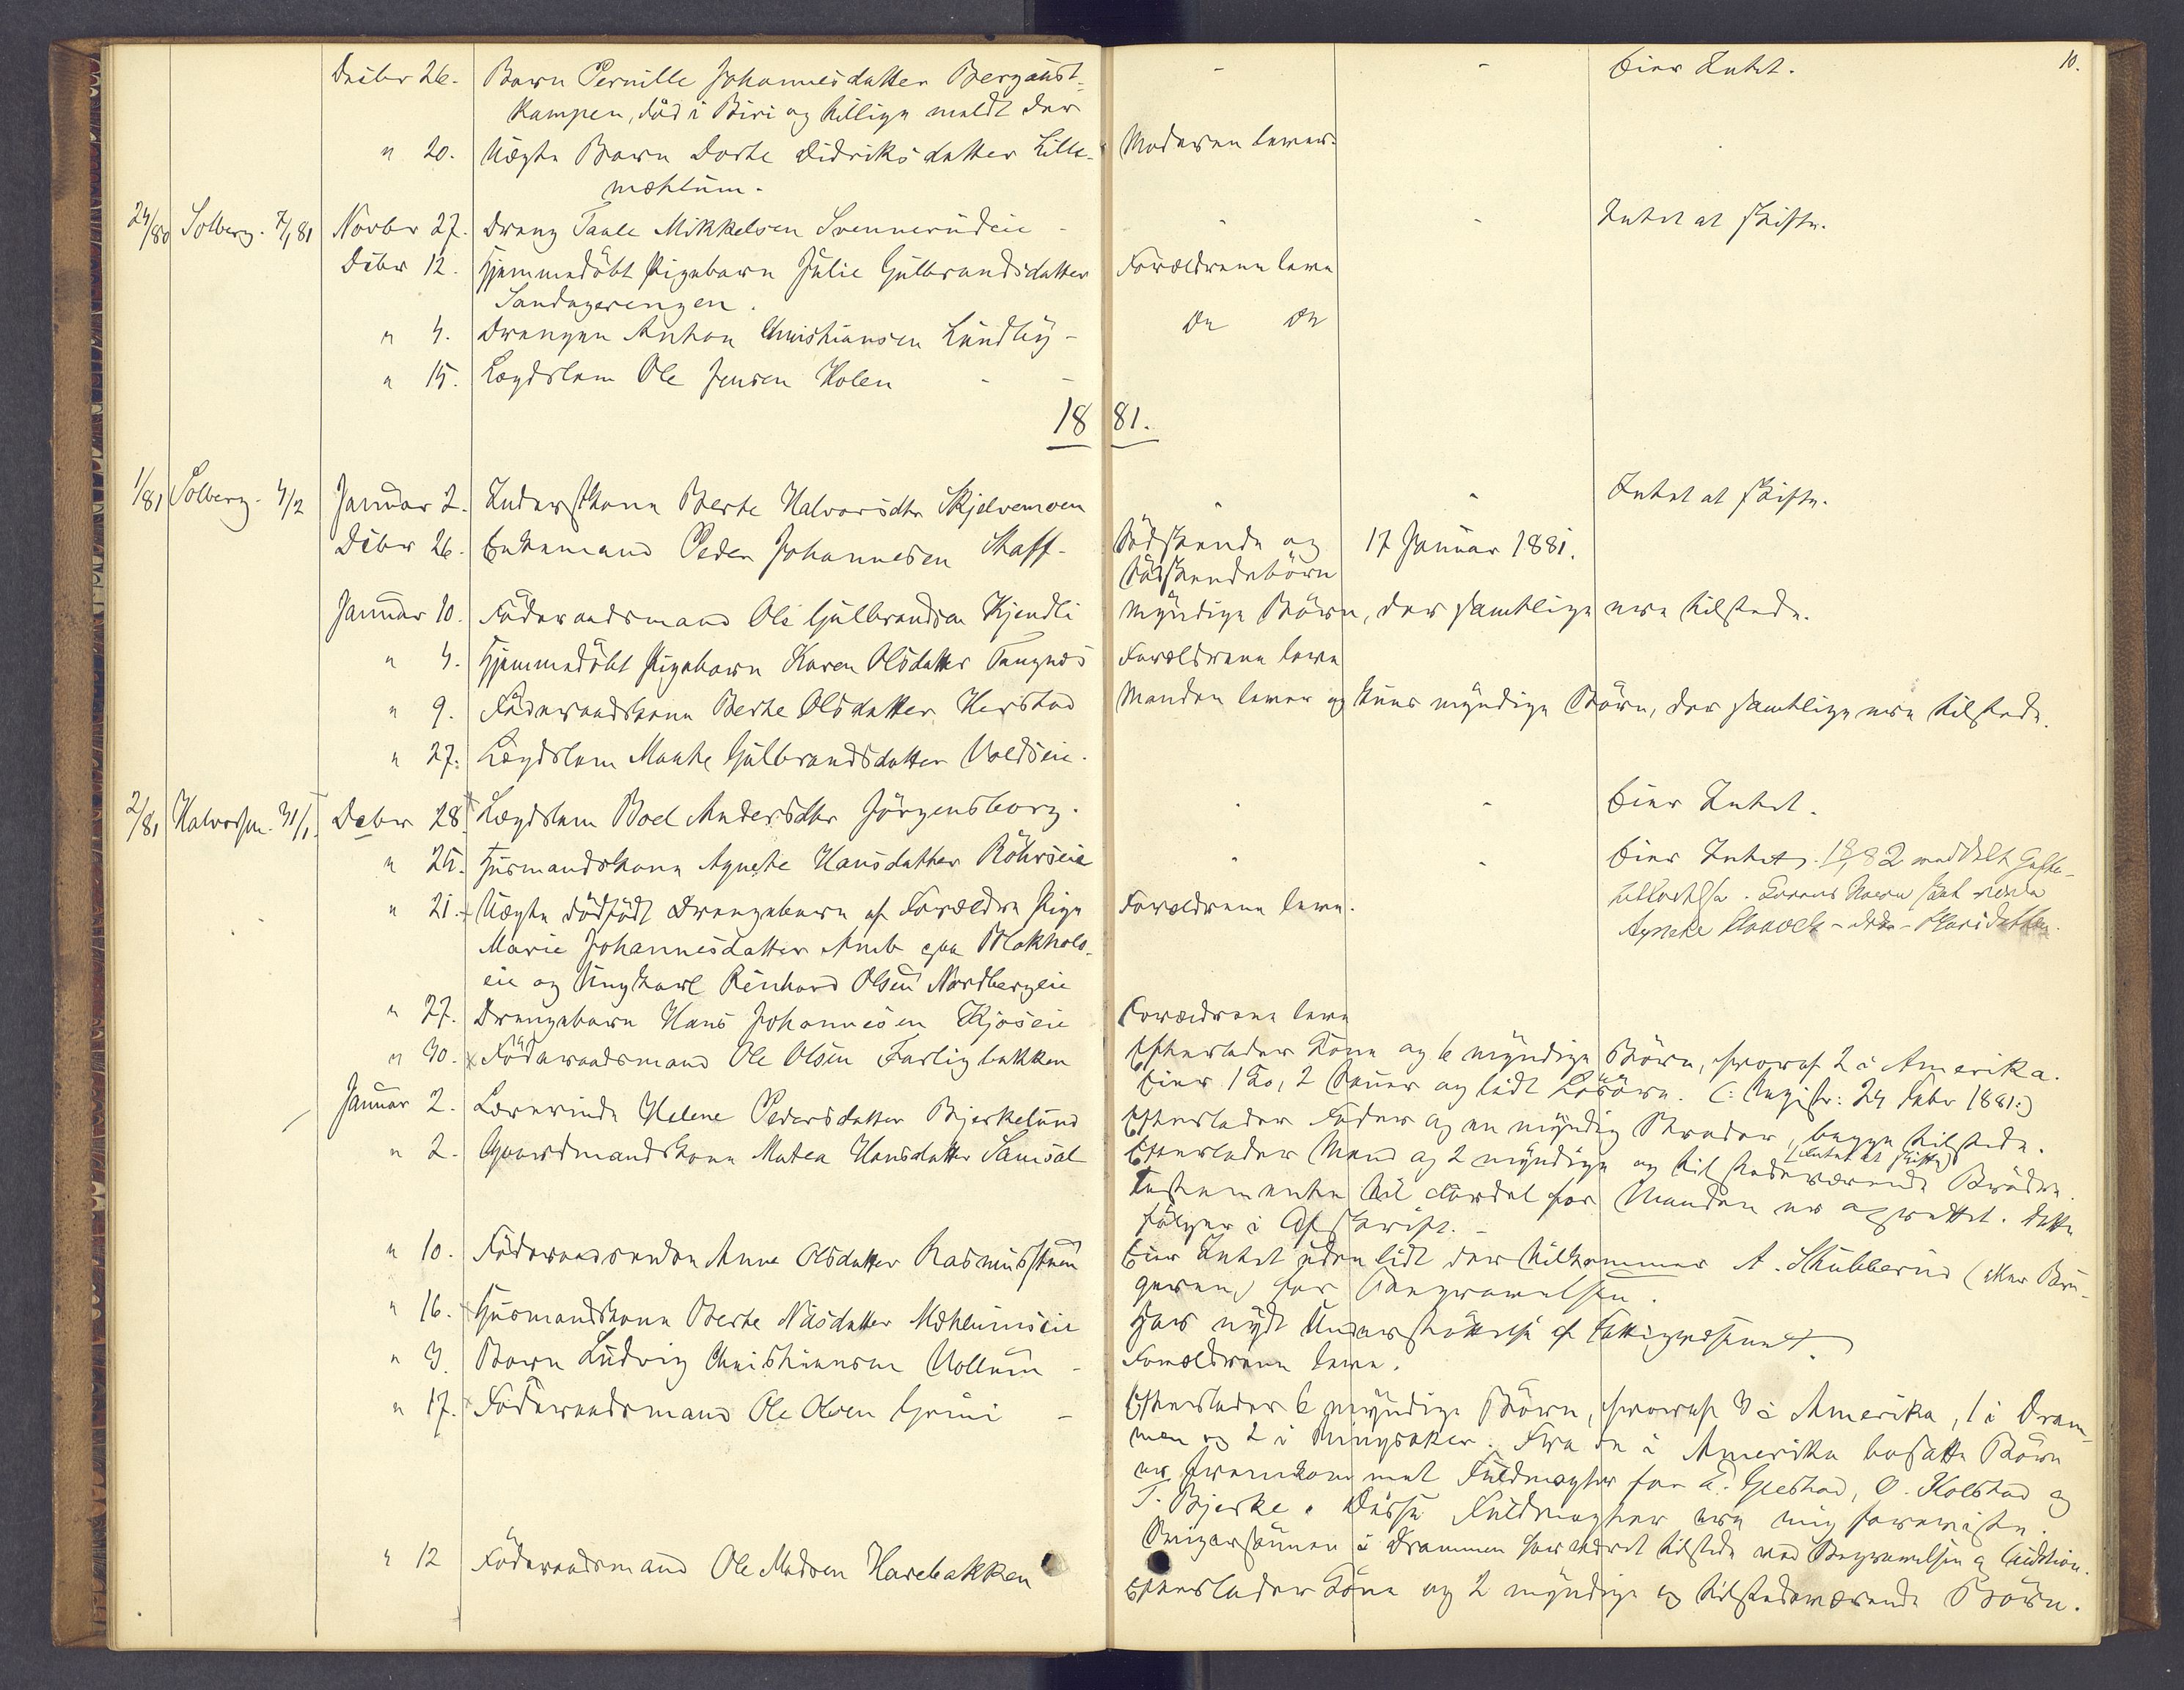 10.
Decbr 26. Barn Pernille Johannesdatter Bergaust- - - Eier Intet.
kampen, död i Biri og tillige meldt der
" 20. Uægte Barn Dorte Didriksdatter Lille- Moderen lever.
mæhlum.
24/80 Solberg. 7/1 81 Novbr 27. Dreng Taale Mikkelsen Svennerudeie - - - Intet at skifte.
Dcbr 12. Hjemmedöbt Pigebarn Julie Gulbrandsdatter Forældrene leve
Sandagerengen.
" 4. Drengen Anton Christiansen Lundby - Do Do
" 15. Lægdslem Ole Jensen Holen - -
1881.
1/81 Solberg. 4/2 Januar 2. Inderstkone Berte Halvorsdtr Skjelvemoen - - Intet at skifte.
Dcbr 26. Enkemand Peder Johannesen Skaff - Södskende og 17 Januar 1881.
Södskendebörn
Januar 10. Föderaadsmand Ole Gulbrandsen Kjendli Myndige Börn, der samtlige ere tilstede.
" 4. Hjemmedöbt Pigebarn Karen Olsdatter Tangnæs Forældrene leve
" 9. Föderaadskone Berte Olsdatter Herstad Manden lever og kuns myndige Börn, der samtlige ere tilstede.
" 27. Lægdslem Marthe Gulbrandsdatter Voldseie.
2/81 Halvorsen. 31/1. Decbr 28. Lægdslem Boel Andersdtr Jörgensborg. - - Eier Intet.
" 25. Husmandskone Agnethe Hansdatter Röhrseie - - Eier Intet. 18/1 82 meddelt Skifte-
" 21. Uægte dödfödt Drengebarn af Forældre Pige Forældrene leve.
Marie Johannesdatter Amb paa
eie og Ungkarl Reinhard Olsen Nordbergeie
" 27. Drengebarn Hans Johannesen Kjoseie Forældrene leve
" 30. Föderaadsmand Ole Olsen Farligbakken Efterlader Kone og 6 myndige Börn, hvoraf 2 i Amerika.
Eier 1 Ko, 2 Sauer og lidt Lösöre. (: Registr: 24 Febr 1881:)
Januar 2. Lærerinde Helene Pedersdatter Bjerkelund Efterlader Fader og en myndig Broder, begge tilstede.
(Intet at skifte)
" 2. Gaardmandskone Matea Hansdatter Samsal Efterlader Mand og 2 myndige og tilstedeværende Brödre.
Testamente til Fordel for Manden er oprettet. Dette
fölger i Afskrift. -
" 10. Föderaadsenken Anne Olsdatter Rasmusstuen Eier Intet uden lidt der tilkommer A. Skubberud (eller Bru-
geren) for Begravelsen.
" 16. Husmandskone Berte Nilsdatter Mæhlumseie Har nydt Understöttelse af Fattigvæsenet.
" 3. Barn Ludvig Christiansen Vollum - Forældrene leve.
" 17. Föderaadsmand Ole Olsen Grini - Efterlader 6 myndige Börn, hvoraf 3 i Amerika, 1 i Dram-
men og 2 i Ringsaker. Fra de i Amerika bosatte Börn
er fremkommet Fuldmagter for E. Gjestad, O. Kolstad og
T. Bjerke. Disse Fuldmagter ere mig foreviste.
i Drammen har været tilstede ved Begravelsen og Auktion.
" 12 Föderaadsmand Ole Madsen Harebakken Efterlader Kone og 2 myndige og tilstedeværende Börn.